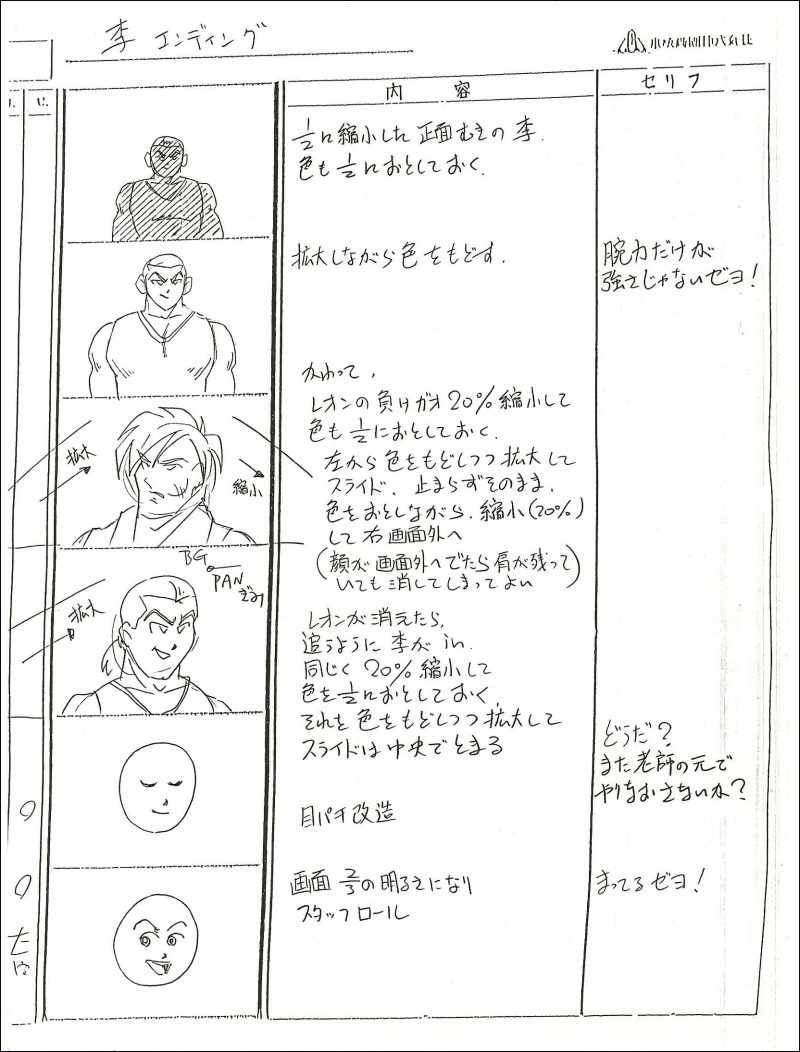 李 エンディング
内 容
セリフ
1/2に縮小した正面むきの李.
色も1/2におとしておく.
拡大しながら色をもどす.
腕力だけが
強さじゃないゼヨ!
かわって,
レオンの負けガオ20%縮小して
色も1/2におとしておく.
左から色をもどしつつ拡大して
スライド. 止まらずそのまま.
色をおとしながら. 縮小(20%)
して右画面外へ
(顔が画面外へでたら肩が残って
いても消してしまってよい)
拡大
縮小
BG
PAN
レオンが消えたら,
追うように李がin.
同じく20%縮小して
色を1/2におとしておく,
それを色をもどしつつ拡大して
スライドは中央でとまる
拡大
どうだ?
また老師の元で
やりなおさないか?
目パチ改造
画面2/3の明るさになり
スタッフロール
まってるゼヨ!